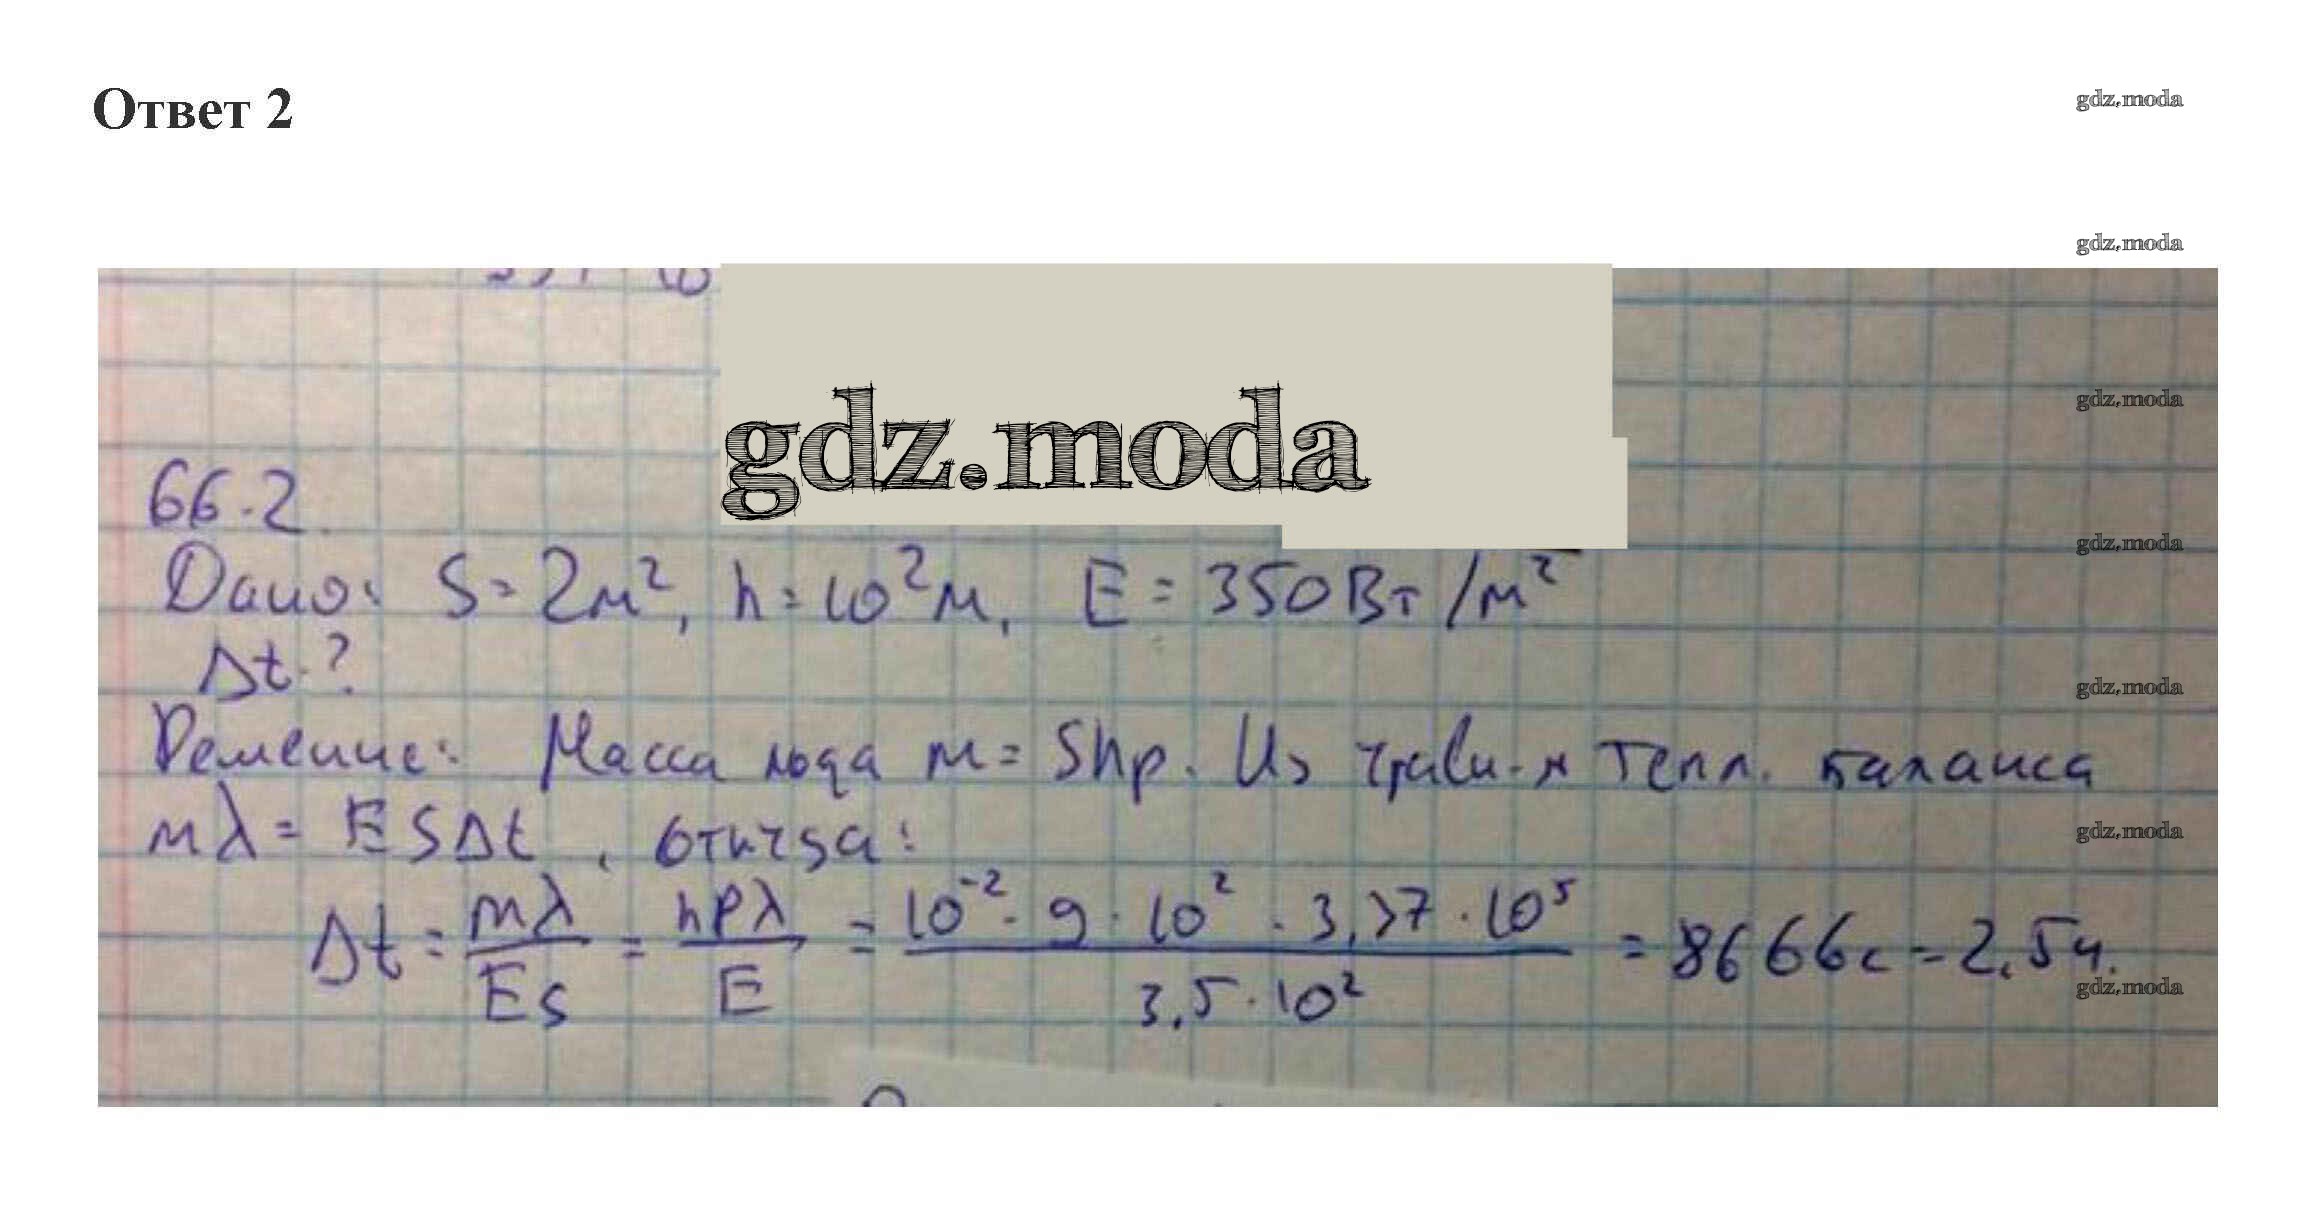 Ответ 2
gdz.moda
gdz.moda
gdz.moda
gdz.moda
66.2
gdz.moda
Дано: S = 2м², h = 10²м, E = 350Вт/м²
Δt - ?
gdz.moda
Решение: Масса льда m = Shρ. Из уравн-я тепл. баланса
mλ = ESΔt, откуда:
gdz.moda
Δt = mλ/ES = hρλ/E = 10⁻² · 9 · 10² · 3,37 · 10⁵ / 3,5 · 10² = 8666с = 2,5ч.
gdz.moda